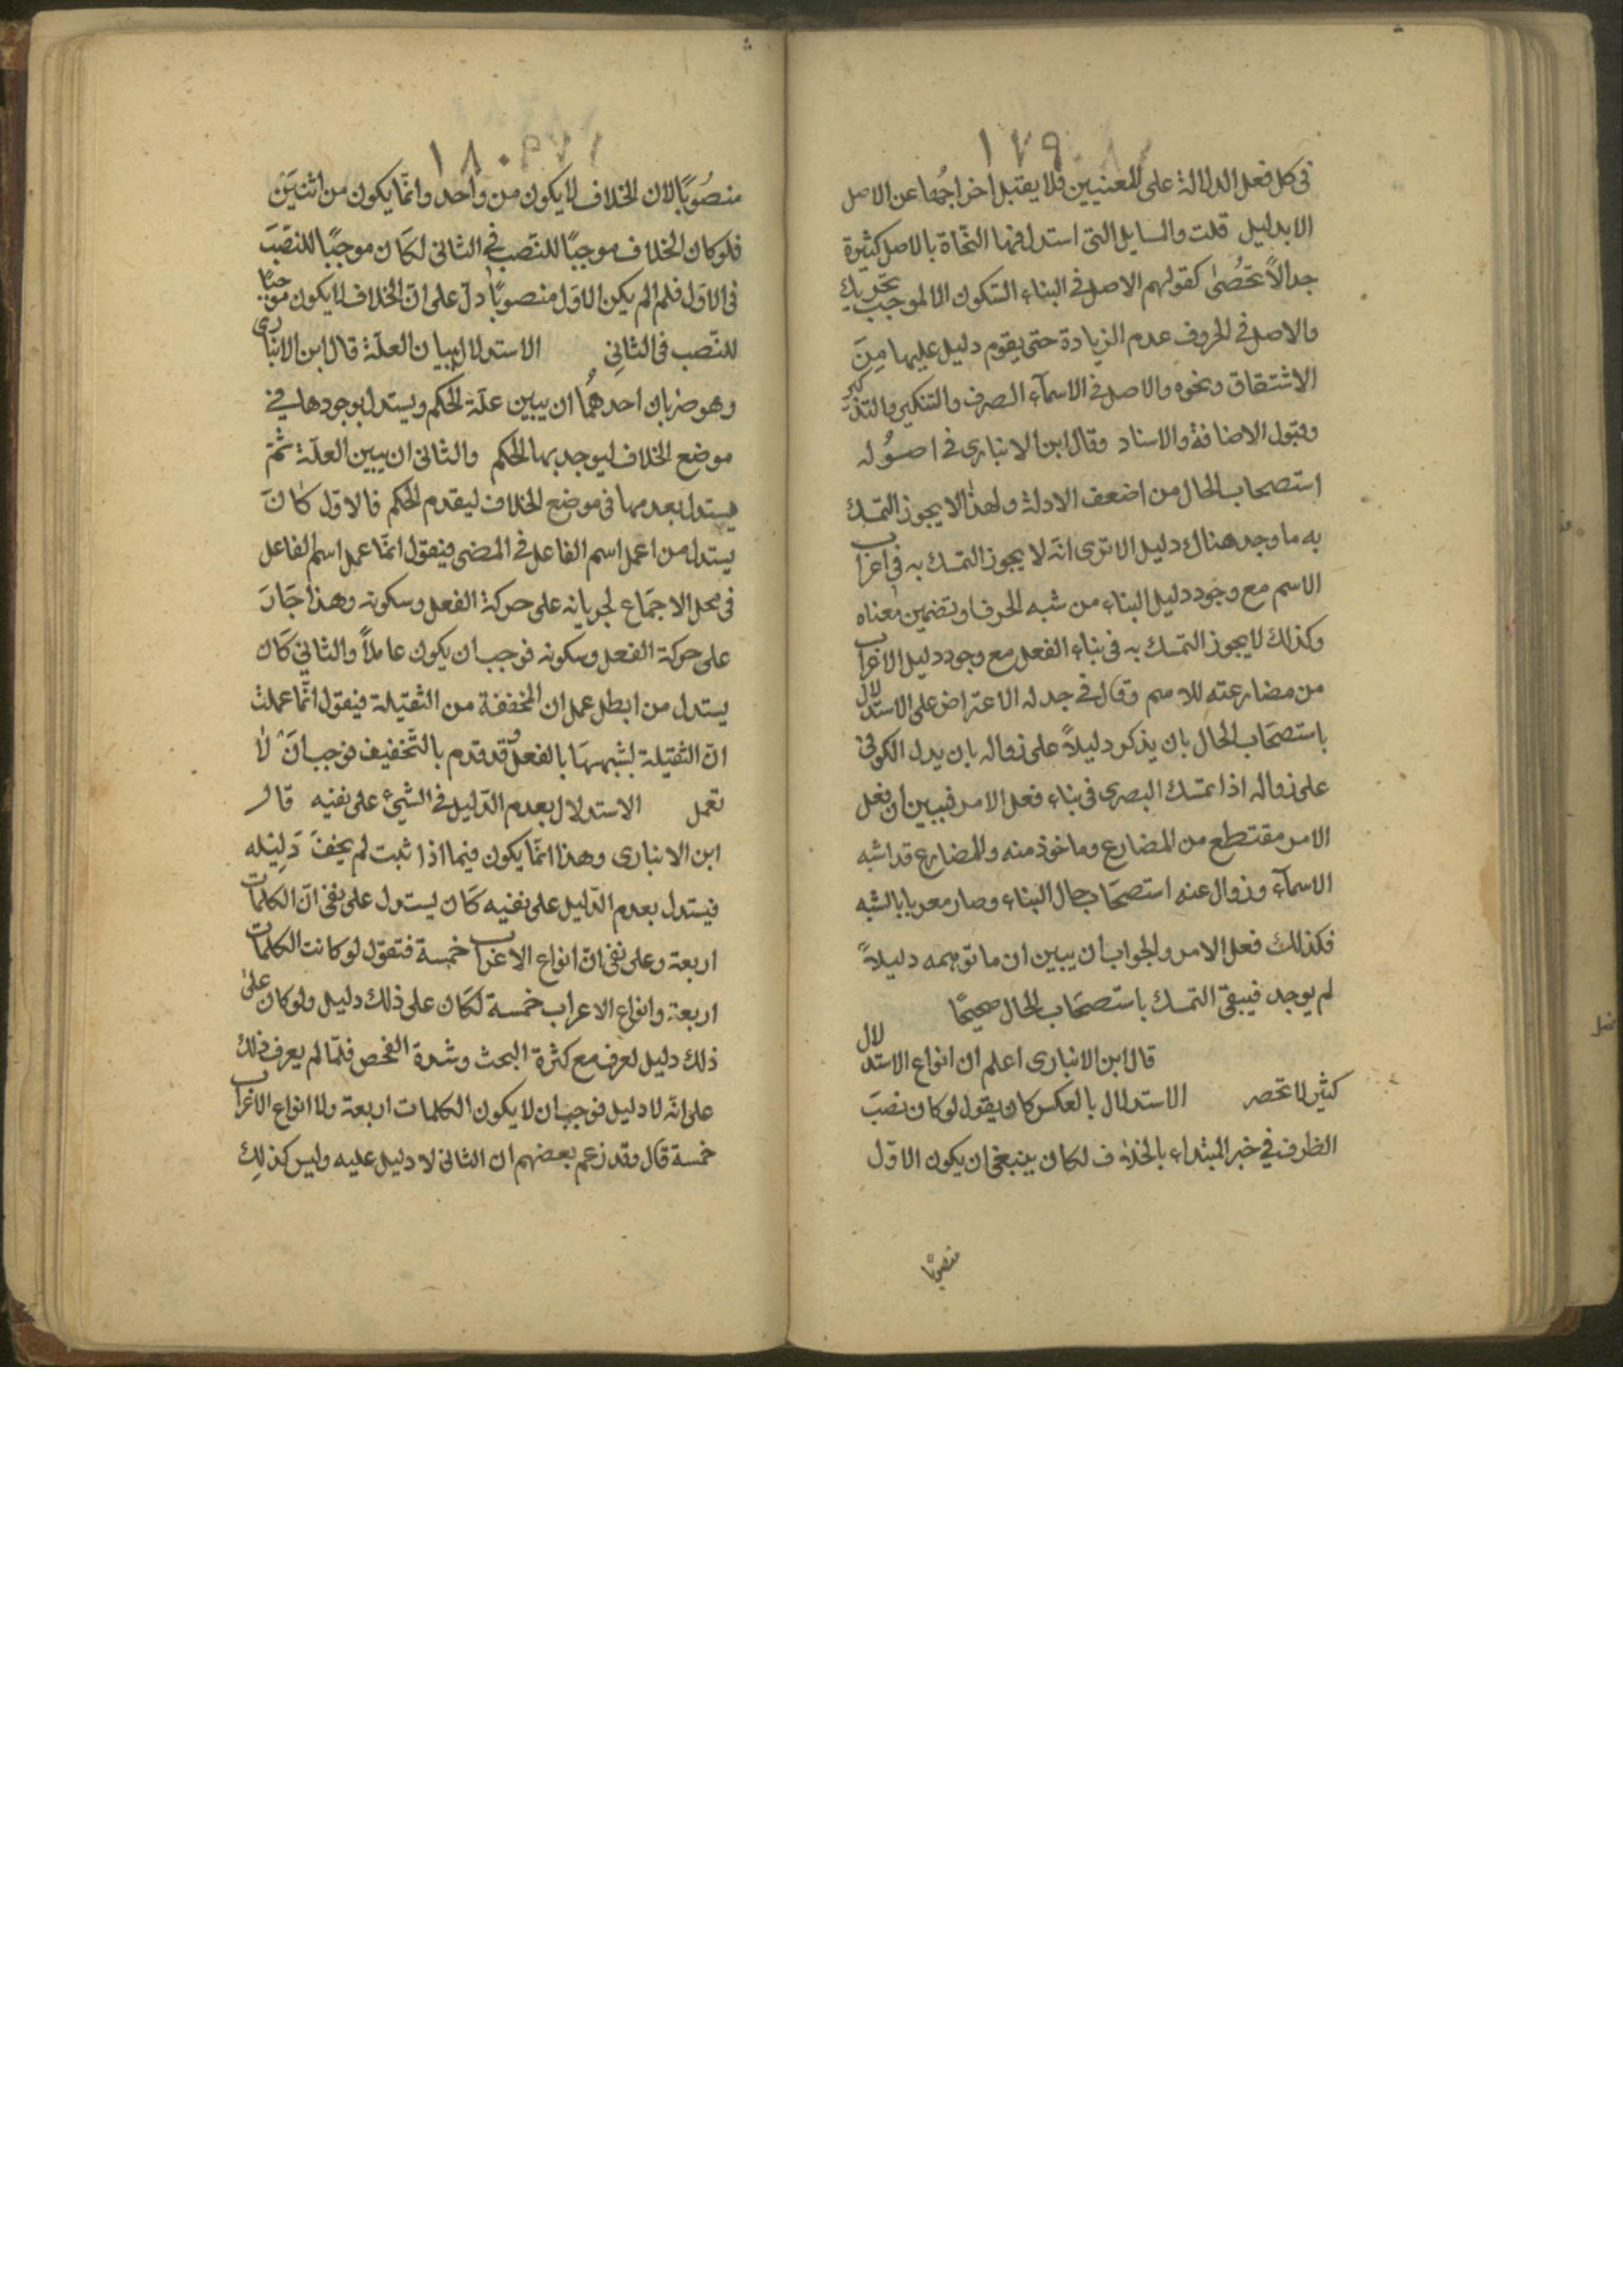 ١٧٩
فى كل فعل الدلالة على المعنيين فلا يقبل اخراجهما عن الاصل
الا بدليل قلت والمسايل التى استدل فيها النحاة بالاصل كثيرة
جدا لا تحصى كقولهم الاصل فى البناء السكون الا لموجب تحريك
والاصل فى الحروف عدم الزيادة حتى يقوم دليل عليها من
الاشتقاق ونحوه والاصل فى الاسمآء الصرف والتنكير والتذكير
وقبول الاضافة والاسناد وقال ابن الانبارى فى اصوله
استصحاب الحال من اضعف الادلة ولهذا لا يجوز التمسك
به ما وجد هناك دليل الا ترى انه لا يجوز التمسك به فى اعراب
الاسم مع وجود دليل البناء من شبه الحرف او تضمين معناه
وكذلك لا يجوز التمسك به فى بناء الفعل مع وجود دليل الاعراب
من مضارعته للاسم وقال فى جدله الاعتراض على الاستدلال
باستصحاب الحال بان يذكر دليلاً على زواله بان يدل الكوفى
على زواله اذا تمسك البصرى فى بناء فعل الامر فيبين ان فعل
الامر مقتطع من المضارع وماخوذ منه والمضارع قد اشبه
الاسمآء وزوال عنه استصحاب حال البناء وصار معربا بالشبه
فكذلك فعل الامر والجواب ان يبين ان ما توهمه دليلاً
لم يوجد فيبقى التمسك باستصحاب الحال صحيحًا
قال ابن الانبارى اعلم ان انواع الاستدلال
كثير لا تحصر الاستدلال بالعكس كان يقول لو كان نصب
الظرف في خبر المبتداء بالخلاف لكان ينبغى ان يكون الاوّل
منصوبًا
١٨٠
منصُوبًا لان الخلاف لا يكون من واحد وانمّا يكون من اثنين
فلو كان الخلاف موجبًا للنصب فى الثانى لكان موجبًا للنصب
فى الاوّل فلم الم يكن الاوّل منصوبًا دلّ على انّ الخلاف لا يكون موجبًا
للنصب فى الثانى الاستدلال ببيان العلّة قال ابن الانبارى
وهو ضربان احدهمُا ان يبين علّة الحكم ويستدل بوجودها في
موضع الخلاف ليوجد بها الحكم والثانى ان يبين العلّة ثمّ
يستدل بعدمها فى موضع الخلاف ليقدم الحكم فالاوّل كان
يستدل من اعمل اسم الفاعل فى المضى فيقول انمّا عمل اسم الفاعل
فى محل الاجماع لجريانه على حركة الفعل وسكونه وهذا جَارَ
على حركة الفعل وسكونه فوجب ان يكون عاملاً والثاني كان
يستدل من ابطل عمل ان المخففة من الثقيلة فيقول انمّا عملت
انّ الثقيلة لشبهها بالفعل وقد قدم بالتّخفيف فوجب انّ لا
تعمل الاستدلال بعدم الدّليل فى الشيئ على نفيه قال
ابن الانبارى وهذا انمّا يكون فيما اذا ثبت لم يخفَ دَليله
فيستدل بعدم الدّليل على نفيه كان يستدل على نفى انّ الكلمات
اربعة وعلى نفى انّ انواع الاعراب خمسة فتقول لو كانت الكلمات
اربعة وانواع الاعراب خمسة لكان على ذلك دليل ولو كان على
ذلك دليل لعرف مع كثرة البحث وشدة الفحص فلمّا لم يعرف ذلك
على انّه لا دليل فوجب ان لا يكون الكلمات اربعة ولا انواع الاعراب
خمسة قال وقد زعم بعضهم ان الثانى لا دليل عليه وليس كذلك